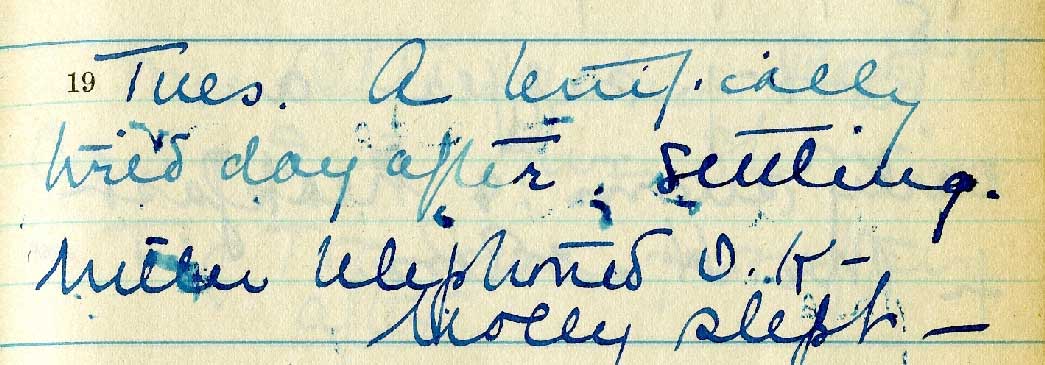 19 Tues. A terrifically
tired day after settling.
telephoned O.K –
Molly slept –